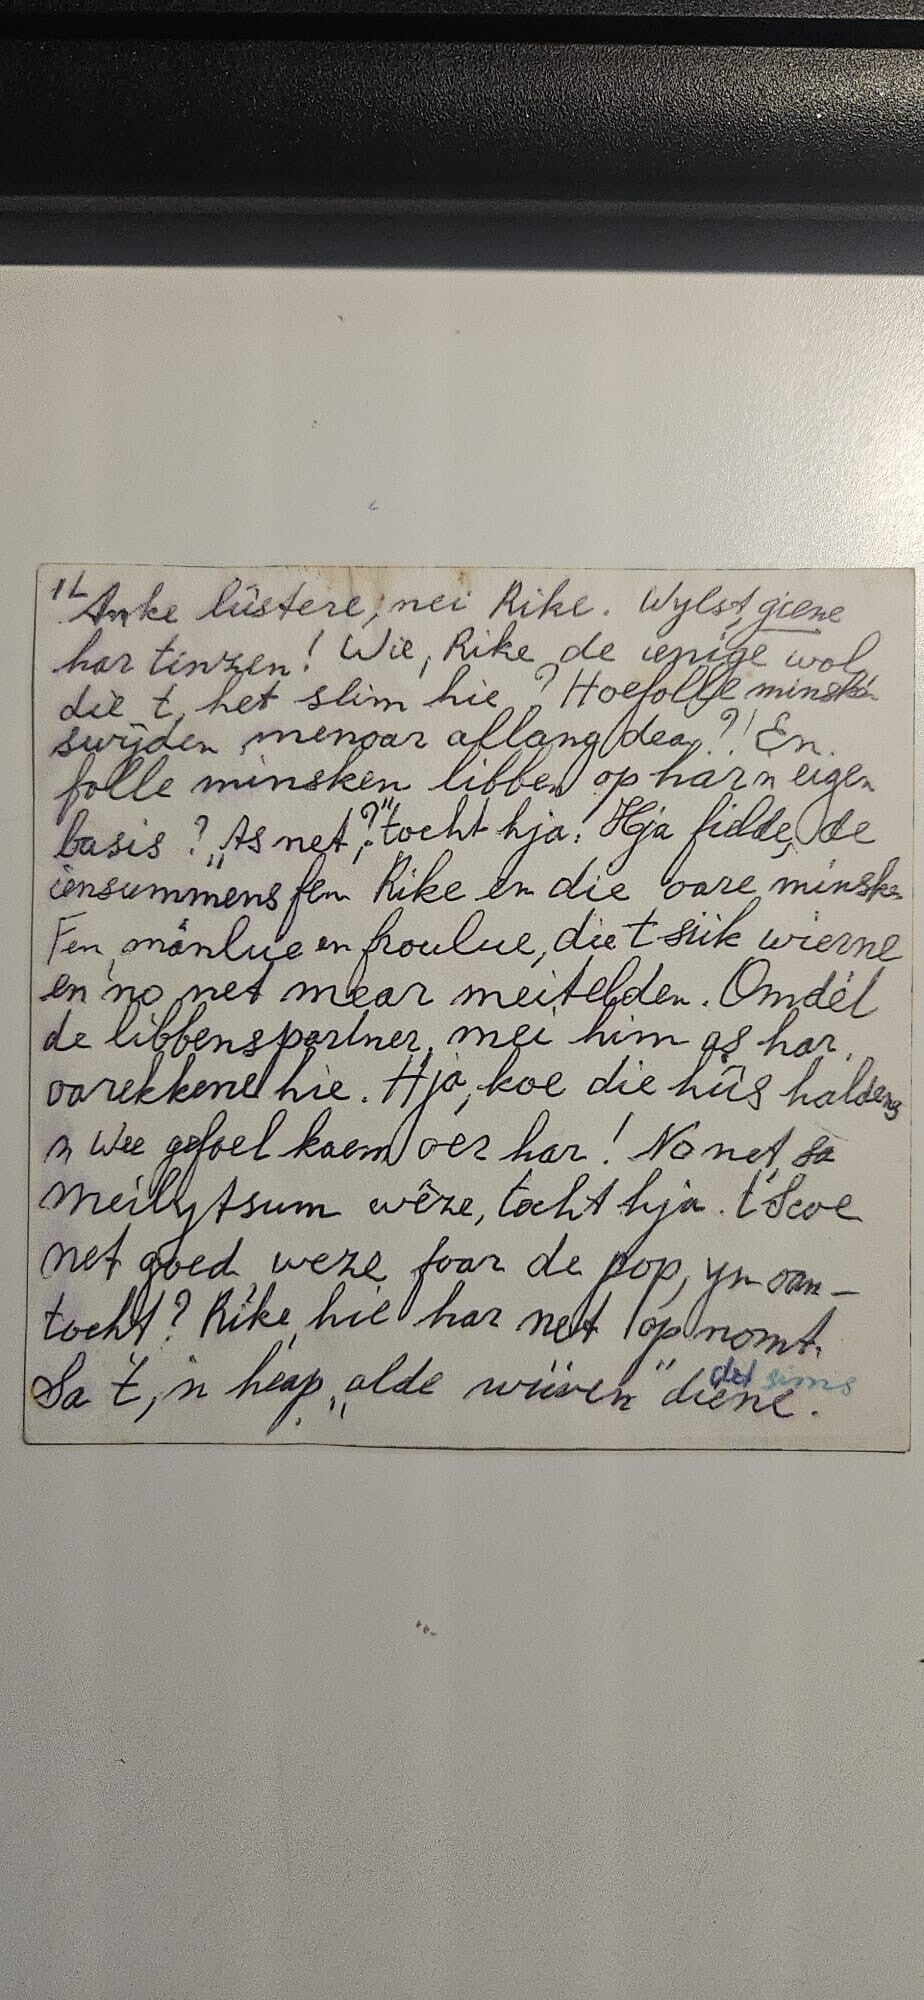 "Anke lústere, nei Rike. Wylst, giene
har tinzen! Wie, Rike de ienige wol
die t, het slim hie? Hoefolle minsken
swijden, menoar allang dea?! En
folle minsken libben op har'n eigen
basis? „As net?" tocht hja! Hja fielde, de
iensummens fen Rike en die oare minsken
Fen mânlue en froulue, die t siik wierne
en no net mear meitelden. Omdét
de libbenspartner, mei him as har,
oarekkene hie. Hja, koe die hûs haldens
n wee gefoel kaem oer har! No net, sa
meilytsum wêze, tocht hja. t' Scoe
net goed weze foar de pop, yn oan-
tocht? Rike, hie har net opnomt.
Sa t, 'n heap „alde wüven" det sims diene.